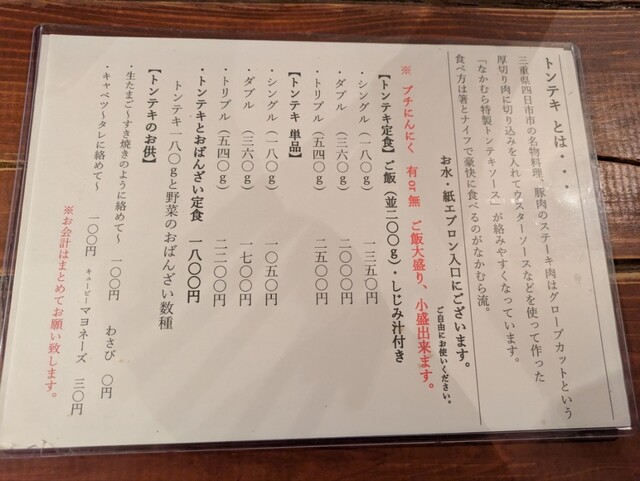 トンテキ とは・・・
三重県四日市市の名物料理、豚肉のステーキ肉はグローブカットという
厚切り肉に切り込みを入れてウスターソースなどを使って作った
「なかむら特製トンテキソース」が絡みやすくなっています。
食べ方は箸とナイフで豪快に食べるのがなかむら流。
お水・紙エプロン入口にございます。
ご自由にお使いください。
※ プチにんにく 有or無 ご飯大盛り、小盛出来ます。
【トンテキ定食】ご飯（並二〇〇g）・しじみ汁付き
・シングル（一八〇g） 一三五〇円
・ダブル（三六〇g） 二〇〇〇円
・トリプル（五四〇g） 二五〇〇円
【トンテキ 単品】
・シングル（一八〇g） 一〇五〇円
・ダブル（三六〇g） 一七〇〇円
・トリプル（五四〇g） 二二〇〇円
・トンテキとおばんざい定食 一八〇〇円
トンテキ一八〇gと野菜のおばんざい数種
【トンテキのお供】
・生たまご～すき焼きのように絡めて～ 一〇〇円 わさび 〇円
・キャベツ～タレに絡めて～ 一〇〇円 キューピーマヨネーズ 三〇円
※お会計はまとめてお願い致します。